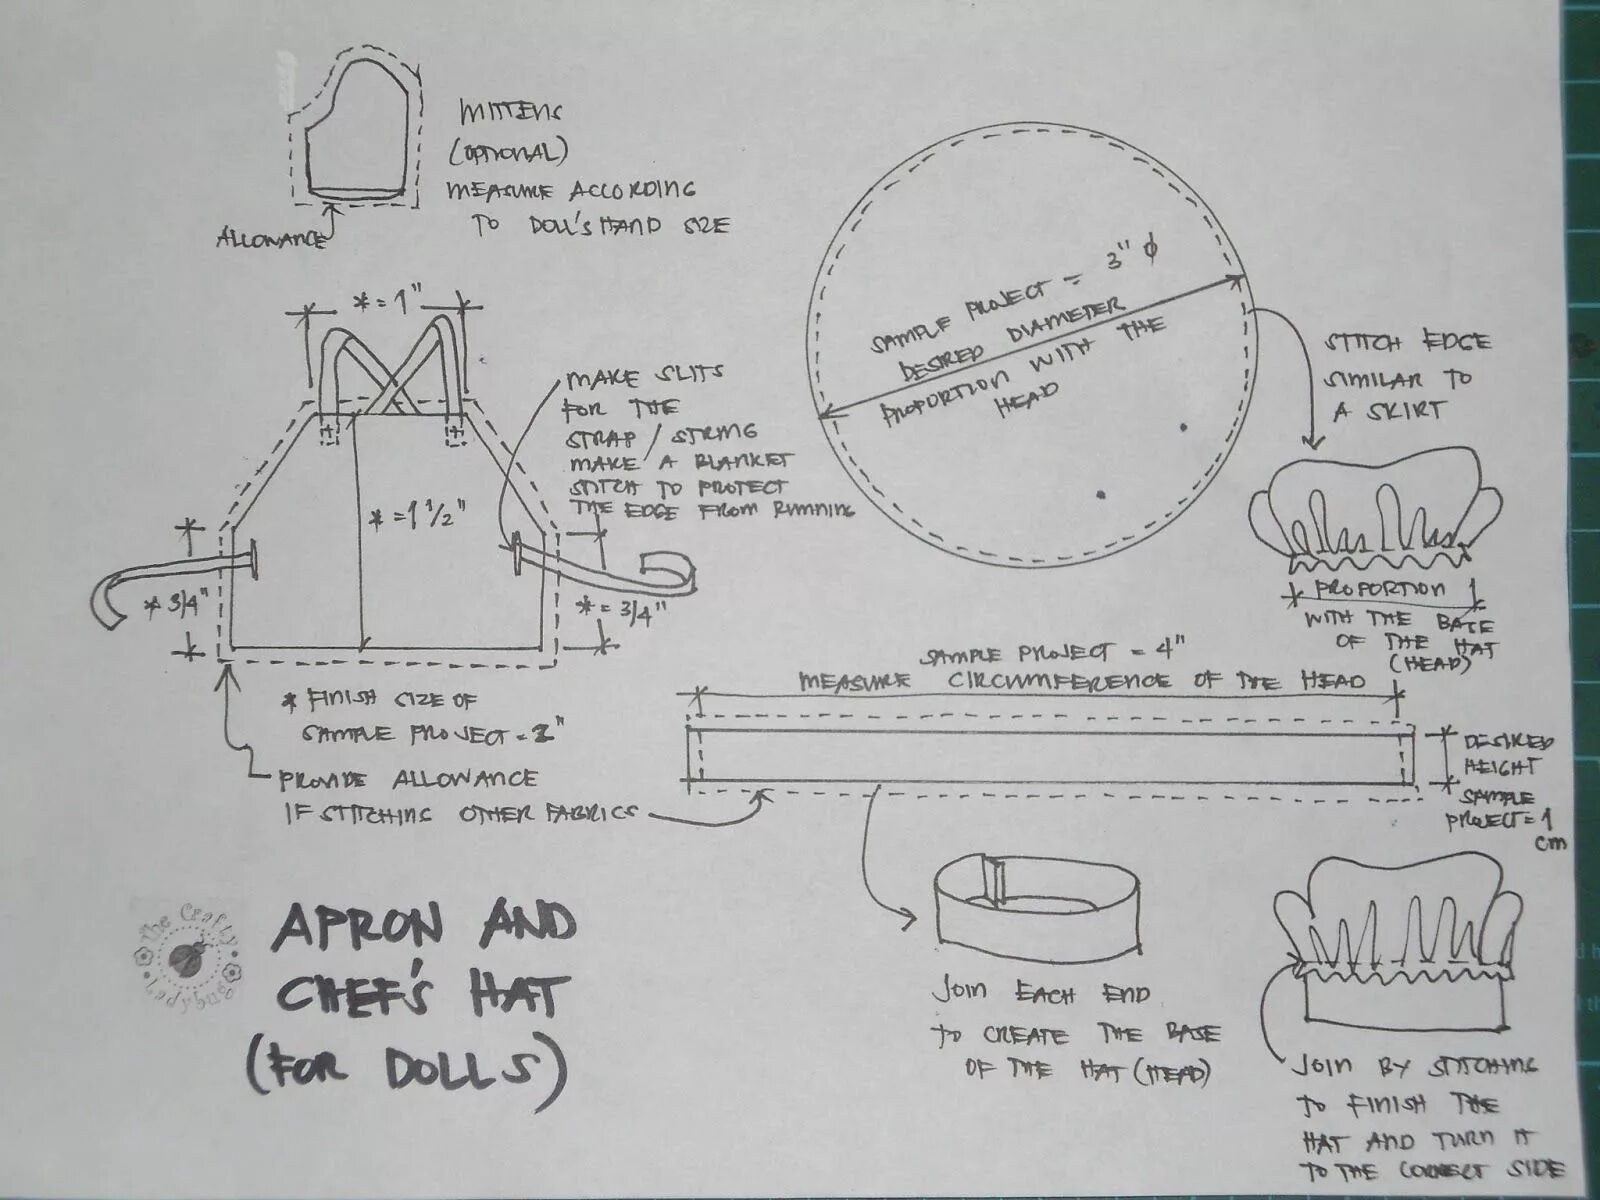 MITTENS
(OPTIONAL)
MEASURE ACCORDING
TO DOLL'S HAND SIZE
ALLOWANCE
* = 1"
* = 1 1/2"
* 3/4"
* = 3/4"
MAKE SLITS
FOR THE
STRAP / STRING
MAKE A BLANKET
STITCH TO PROTECT
THE EDGE FROM RUNNING
* FINISH SIZE OF
SAMPLE PROJECT = 2"
PROVIDE ALLOWANCE
IF STITCHING OTHER FABRICS
SAMPLE PROJECT = 3" φ
DESIRED DIAMETER
PROPORTION WITH THE
HEAD
STITCH EDGE
SIMILAR TO
A SKIRT
PROPORTION
WITH THE BASE
OF THE HAT
(HEAD)
SAMPLE PROJECT = 4"
MEASURE CIRCUMFERENCE OF THE HEAD
DESIRED
HEIGHT
SAMPLE
PROJECT = 1
cm
JOIN EACH END
TO CREATE THE BASE
OF THE HAT (HEAD)
JOIN BY STITCHING
TO FINISH THE
HAT AND TURN IT
TO THE CORRECT SIDE
The Crafty
Ladybug
APRON AND
CHEF'S HAT
(FOR DOLLS)